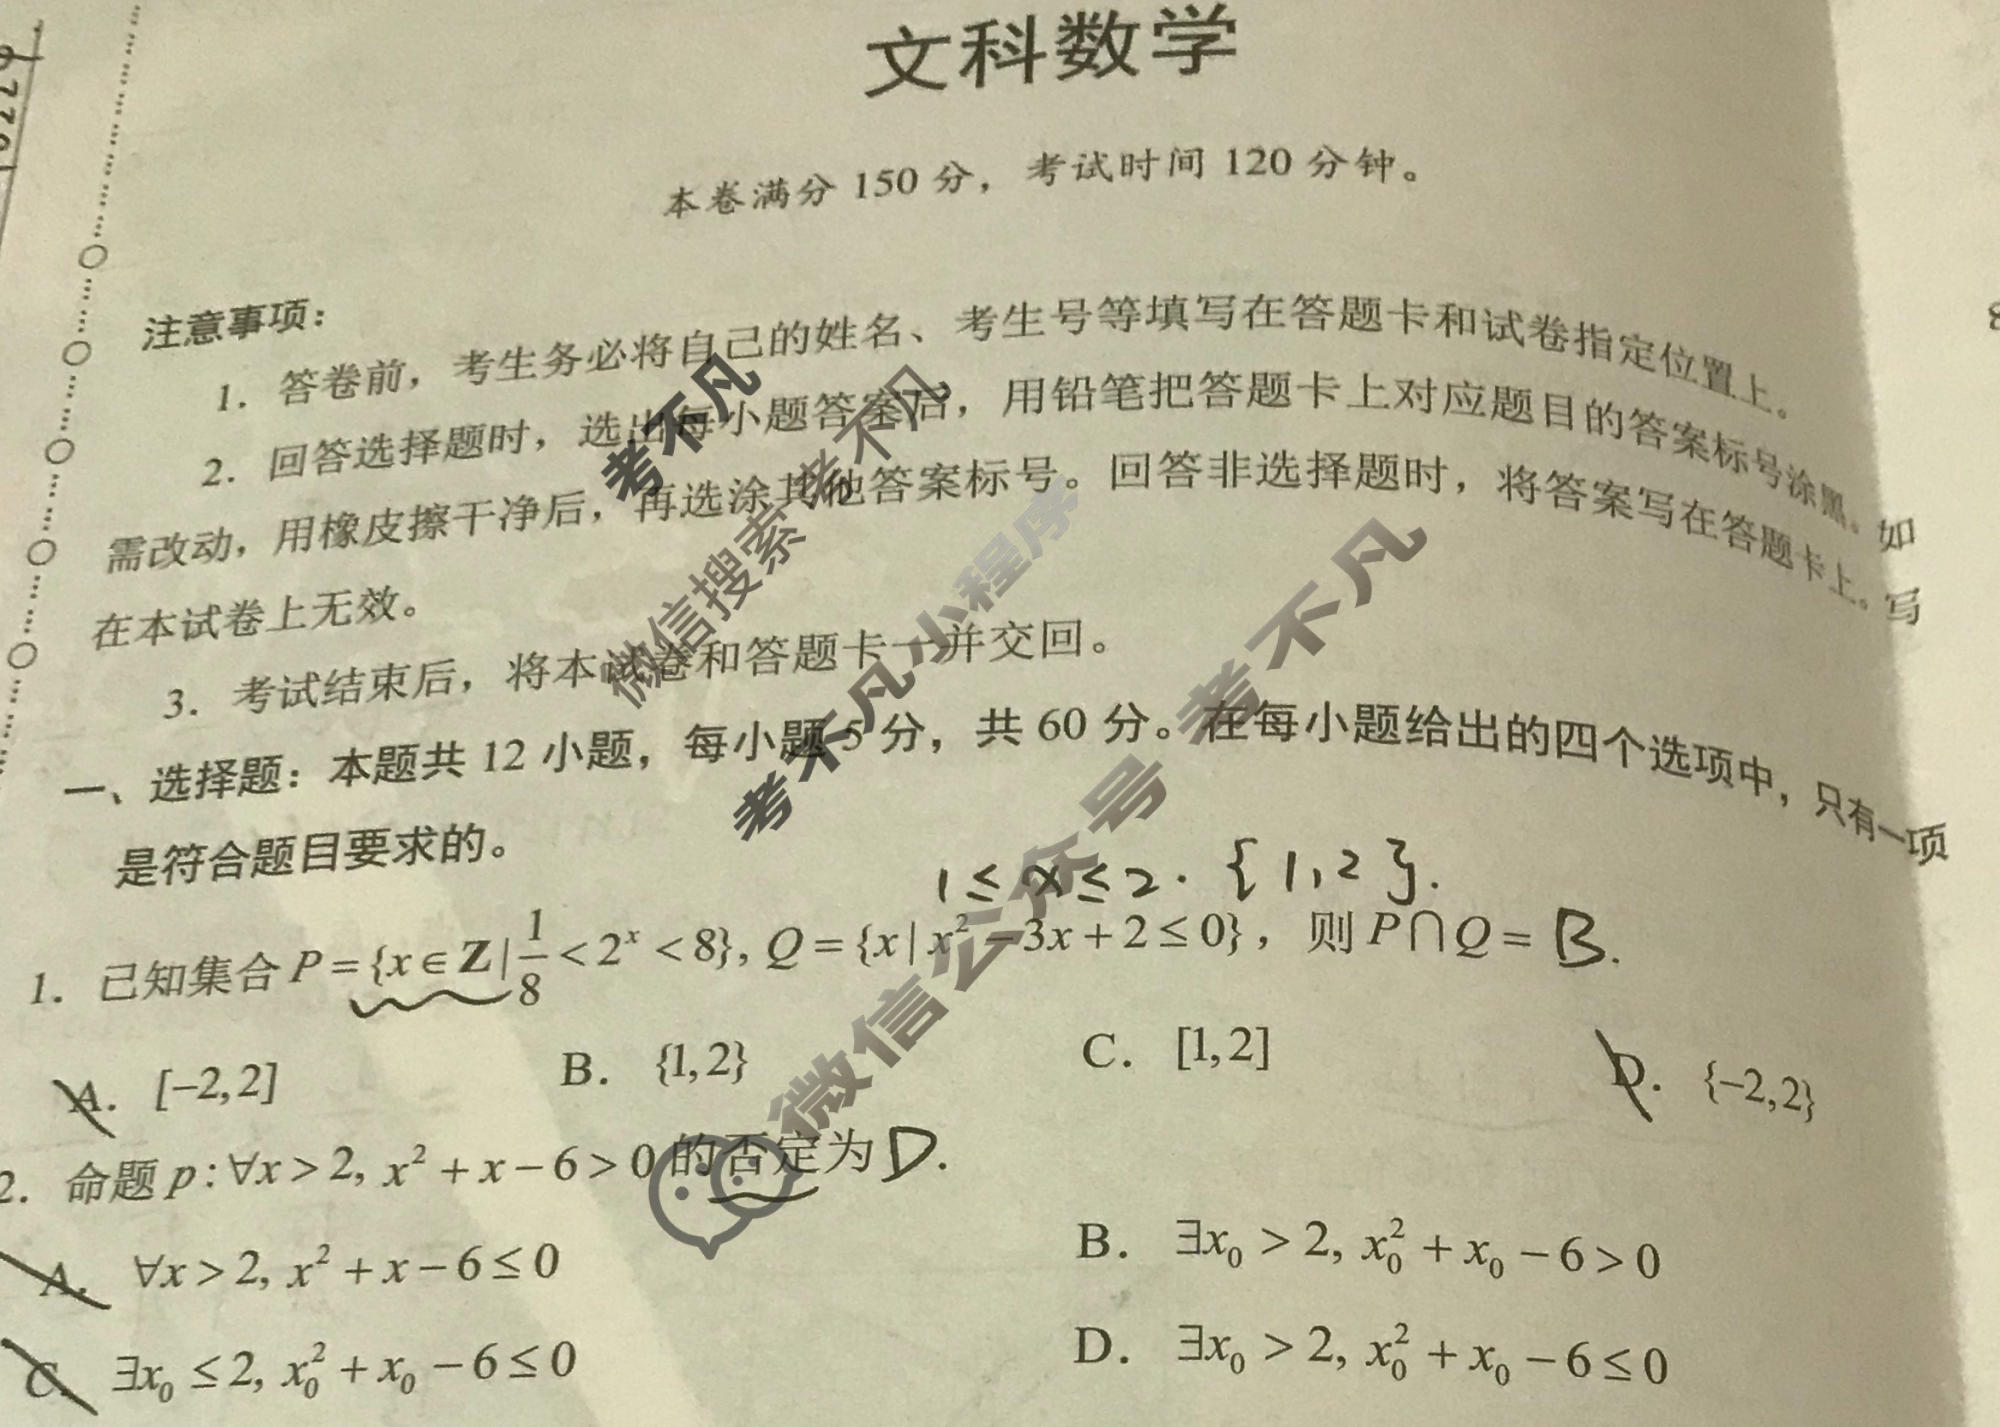 文科数学
本卷满分 150 分，考试时间 120 分钟。
注意事项：
1. 答卷前，考生务必将自己的姓名、考生号等填写在答题卡和试卷指定位置上。
2. 回答选择题时，选出每小题答案后，用铅笔把答题卡上对应题目的答案标号涂黑。如
需改动，用橡皮擦干净后，再选涂其他答案标号。回答非选择题时，将答案写在答题卡上。写
在本试卷上无效。
3. 考试结束后，将本试卷和答题卡一并交回。
一、选择题：本题共 12 小题，每小题 5 分，共 60 分。在每小题给出的四个选项中，只有一项
是符合题目要求的。
1≤x≤2. {1,2}.
1. 已知集合 P={x∈Z|1/8<2^x<8}, Q={x|x²-3x+2≤0}，则 P∩Q= B.
A. [-2,2] B. {1,2} C. [1,2] D. {-2,2}
2. 命题 p:∀x>2, x²+x-6>0 的否定为 D.
A. ∀x>2, x²+x-6≤0 B. ∃x₀>2, x₀²+x₀-6>0
C. ∃x₀≤2, x₀²+x₀-6≤0 D. ∃x₀>2, x₀²+x₀-6≤0
考不凡
微信搜索 考不凡
考不凡小程序
微信公众号 考不凡